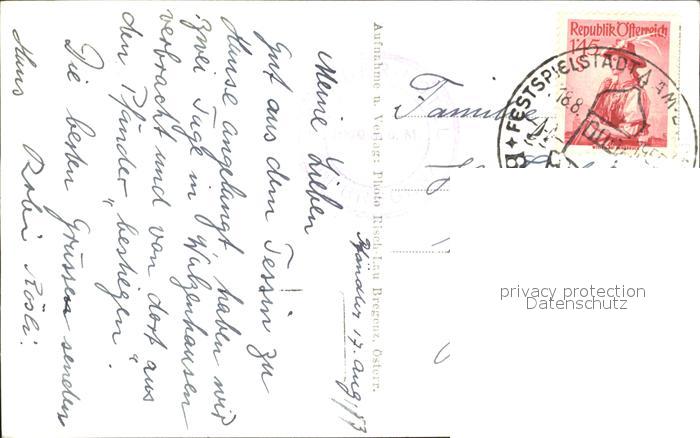 Pfänder 17. Aug. 53
Meine Lieben
Gut aus dem Tessin zu
Hause angelangt, haben wir
zwei Tage in Walzenhausen
verbracht und von dort aus
den "Pfänder" bestiegen.
Die besten Grüsse senden
Hans Robi Rösli.
Aufnahme u. Verlag: Photo Risch-Lau Bregenz, Österr.
Familie
Republik Österreich
1'45
FESTSPIELSTADT AM
18.8.
privacy protection
Datenschutz